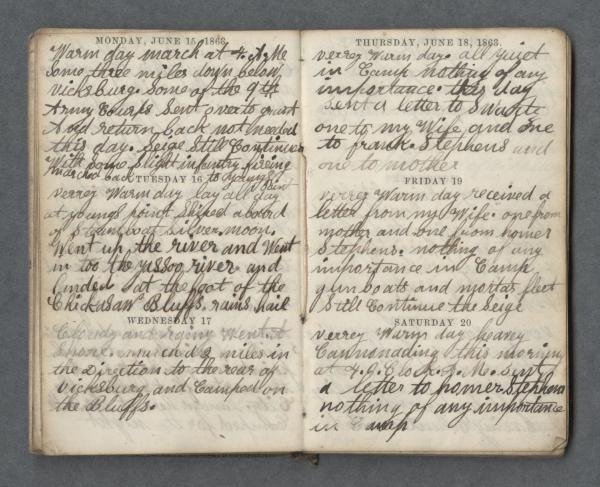 MONDAY, JUNE 15, 1863.
Warm day march at 4. A. Me
Some three miles down below
Vicksburg. Some of the 9th
Army Courps Sent over to
And return back not needed
this day. Seige Still Continues
With Some Slight infantry fireing
marched back to youngs Point
TUESDAY 16
verrey Warm day lay all day
at youngs point Shiped aboord
of Steamboat Silver moon.
Went up the river and Went
in too the river and
landed at the foot of the
Chickasaw Bluffs. rains hail
WEDNESDAY 17
Cloudy and Went
march'd 2 miles in
the Direction to the rear of
Vicksburg and Camped on
the Bluffs.
THURSDAY, JUNE 18, 1863.
verrey Warm day. all quiet
in Camp nothing of any
importance. this day
Sent a letter to
one to my Wife and one
to frank. Stephens and
one to mother
FRIDAY 19
verrey Warm day received a
letter from my Wife. one from
mother and one from homer
Stephens. nothing of any
importance in Camp
gun boats and mortar fleet
Still Continue the Seige
SATURDAY 20
verrey Warm day heavey
Cannonading this morning
at 4. O Clock A. M. Sent
a letter to homer Stephens
nothing of any importance
in Camp